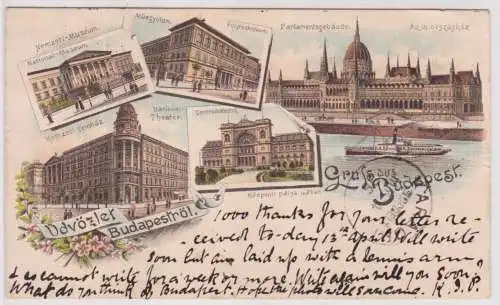 Nemzeti-Museum.
National-Museum.
Műegyetem.
Polytechnicum.
Parlamentsgebäude.
Az új országház
Nemzeti színház
National-
Theater.
Centralbahnhof
Központi pálya udvar.
Gruss aus
Budapest.
Üdvözlet
Budapestről!
1000 thanks for your letter re-
ceived to-day 13th April Will write
soon but am laid up with a tennis arm
& so cannot write for a week or more. Write again will you soon?
What do you think of Budapest. Hope the photos will